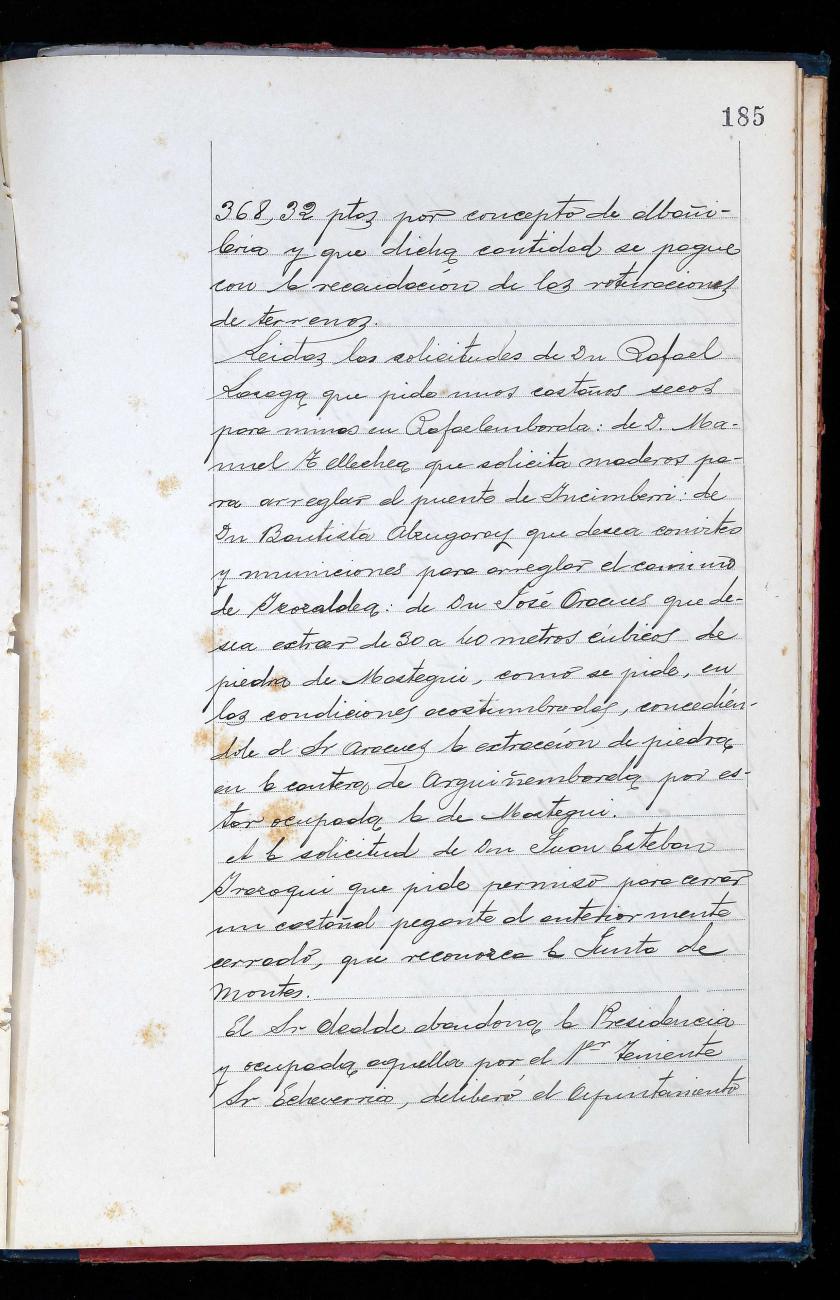 185
368,32 ptas por concepto de albañi-
leria y que dicha cantidad se pague
con la recaudación de las roturaciones
de terrenos.
Leidas las solicitudes de Dn Rafael
Lasaga que pide unos castaños secos
para minas en Rafaelemborda: de D. Ma-
nuel Tellechea que solicita maderos pa-
ra arreglar el puente de Incimberri: de
Dn Bautista Alzugaray que desea convites
y municiones para arreglar el camino
de Irozaldea: de Dn José Aracues que de-
sea extraer de 30 a 40 metros cúbicos de
piedra de Mostegui, como se pide, en
las condiciones acostumbradas, concedién-
dole al Sr Aracuez la extracción de piedra
en la cantera de Arguiñemborda por es-
tar ocupada la de Mostegui.
A la solicitud de Dn Juan Esteban
Irazoqui que pide permiso para cerrar
un castañal pegante al anteriormente
cerrado, que reconozca la Junta de
Montes.
El Sr Alcalde abandona la Presidencia
y ocupada aquella por el 1er Teniente
Sr Echeverria, deliberó el Ayuntamiento